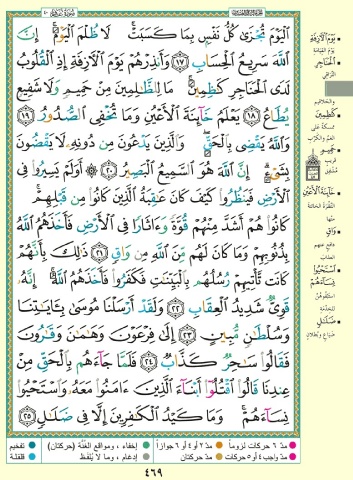 ٱلۡيَوۡمَ تُجۡزَىٰ كُلُّ نَفۡسِۭ بِمَا كَسَبَتۡۚ لَا ظُلۡمَ ٱلۡيَوۡمَۚ إِنَّ
ٱللَّهَ سَرِيعُ ٱلۡحِسَابِ ١٧ وَأَنذِرۡهُمۡ يَوۡمَ ٱلۡأٓزِفَةِ إِذِ ٱلۡقُلُوبُ
لَدَى ٱلۡحَنَاجِرِ كَٰظِمِينَۚ مَا لِلظَّٰلِمِينَ مِنۡ حَمِيمٖ وَلَا شَفِيعٖ
يُطَاعُ ١٨ يَعۡلَمُ خَآئِنَةَ ٱلۡأَعۡيُنِ وَمَا تُخۡفِي ٱلصُّدُورُ ١٩
وَٱللَّهُ يَقۡضِي بِٱلۡحَقِّۖ وَٱلَّذِينَ يَدۡعُونَ مِن دُونِهِۦ لَا يَقۡضُونَ
بِشَيۡءٍۗ إِنَّ ٱللَّهَ هُوَ ٱلسَّمِيعُ ٱلۡبَصِيرُ ٢٠ أَوَلَمۡ يَسِيرُواْ فِي
ٱلۡأَرۡضِ فَيَنظُرُواْ كَيۡفَ كَانَ عَٰقِبَةُ ٱلَّذِينَ كَانُواْ مِن قَبۡلِهِمۡۚ
كَانُواْ هُمۡ أَشَدَّ مِنۡهُمۡ قُوَّةٗ وَءَاثَارٗا فِي ٱلۡأَرۡضِ فَأَخَذَهُمُ ٱللَّهُ
بِذُنُوبِهِمۡ وَمَا كَانَ لَهُم مِّنَ ٱللَّهِ مِن وَاقٖ ٢١ ذَٰلِكَ بِأَنَّهُمۡ
كَانَت تَّأۡتِيهِمۡ رُسُلُهُم بِٱلۡبَيِّنَٰتِ فَكَفَرُواْ فَأَخَذَهُمُ ٱللَّهُۚ إِنَّهُۥ
قَوِيّٞ شَدِيدُ ٱلۡعِقَابِ ٢٢ وَلَقَدۡ أَرۡسَلۡنَا مُوسَىٰ بِـَٔايَٰتِنَا
وَسُلۡطَٰنٖ مُّبِينٍ ٢٣ إِلَىٰ فِرۡعَوۡنَ وَهَٰمَٰنَ وَقَٰرُونَ
فَقَالُواْ سَٰحِرٞ كَذَّابٞ ٢٤ فَلَمَّا جَآءَهُم بِٱلۡحَقِّ مِنۡ
عِندِنَا قَالُواْ ٱقۡتُلُوٓاْ أَبۡنَآءَ ٱلَّذِينَ ءَامَنُواْ مَعَهُۥ وَٱسۡتَحۡيُواْ
نِسَآءَهُمۡۚ وَمَا كَيۡدُ ٱلۡكَٰفِرِينَ إِلَّا فِي ضَلَٰلٖ ٢٥
يَوْمَ الْآزِفَةِ
يوم القيامة
الْحَنَاجِرِ
التراقي
كَاظِمِينَ
حَمِيمٍ
خَائِنَةَ الْأَعْيُنِ
وَاقٍ
اسْتَحْيُوا
نِسَاءَهُمْ
ضَلَالٍ
مدّ ٦ حركات لزوماً
مدّ ٢ أو ٤ أو ٦ جوازاً
إخفاء، ومواقع الغنّة (حركتان)
تفخيم
مدّ واجب ٤ أو ٥ حركات
مدّ حركتان
إدغام، وما لا يُلفظ
قلقلة
٤٦٩